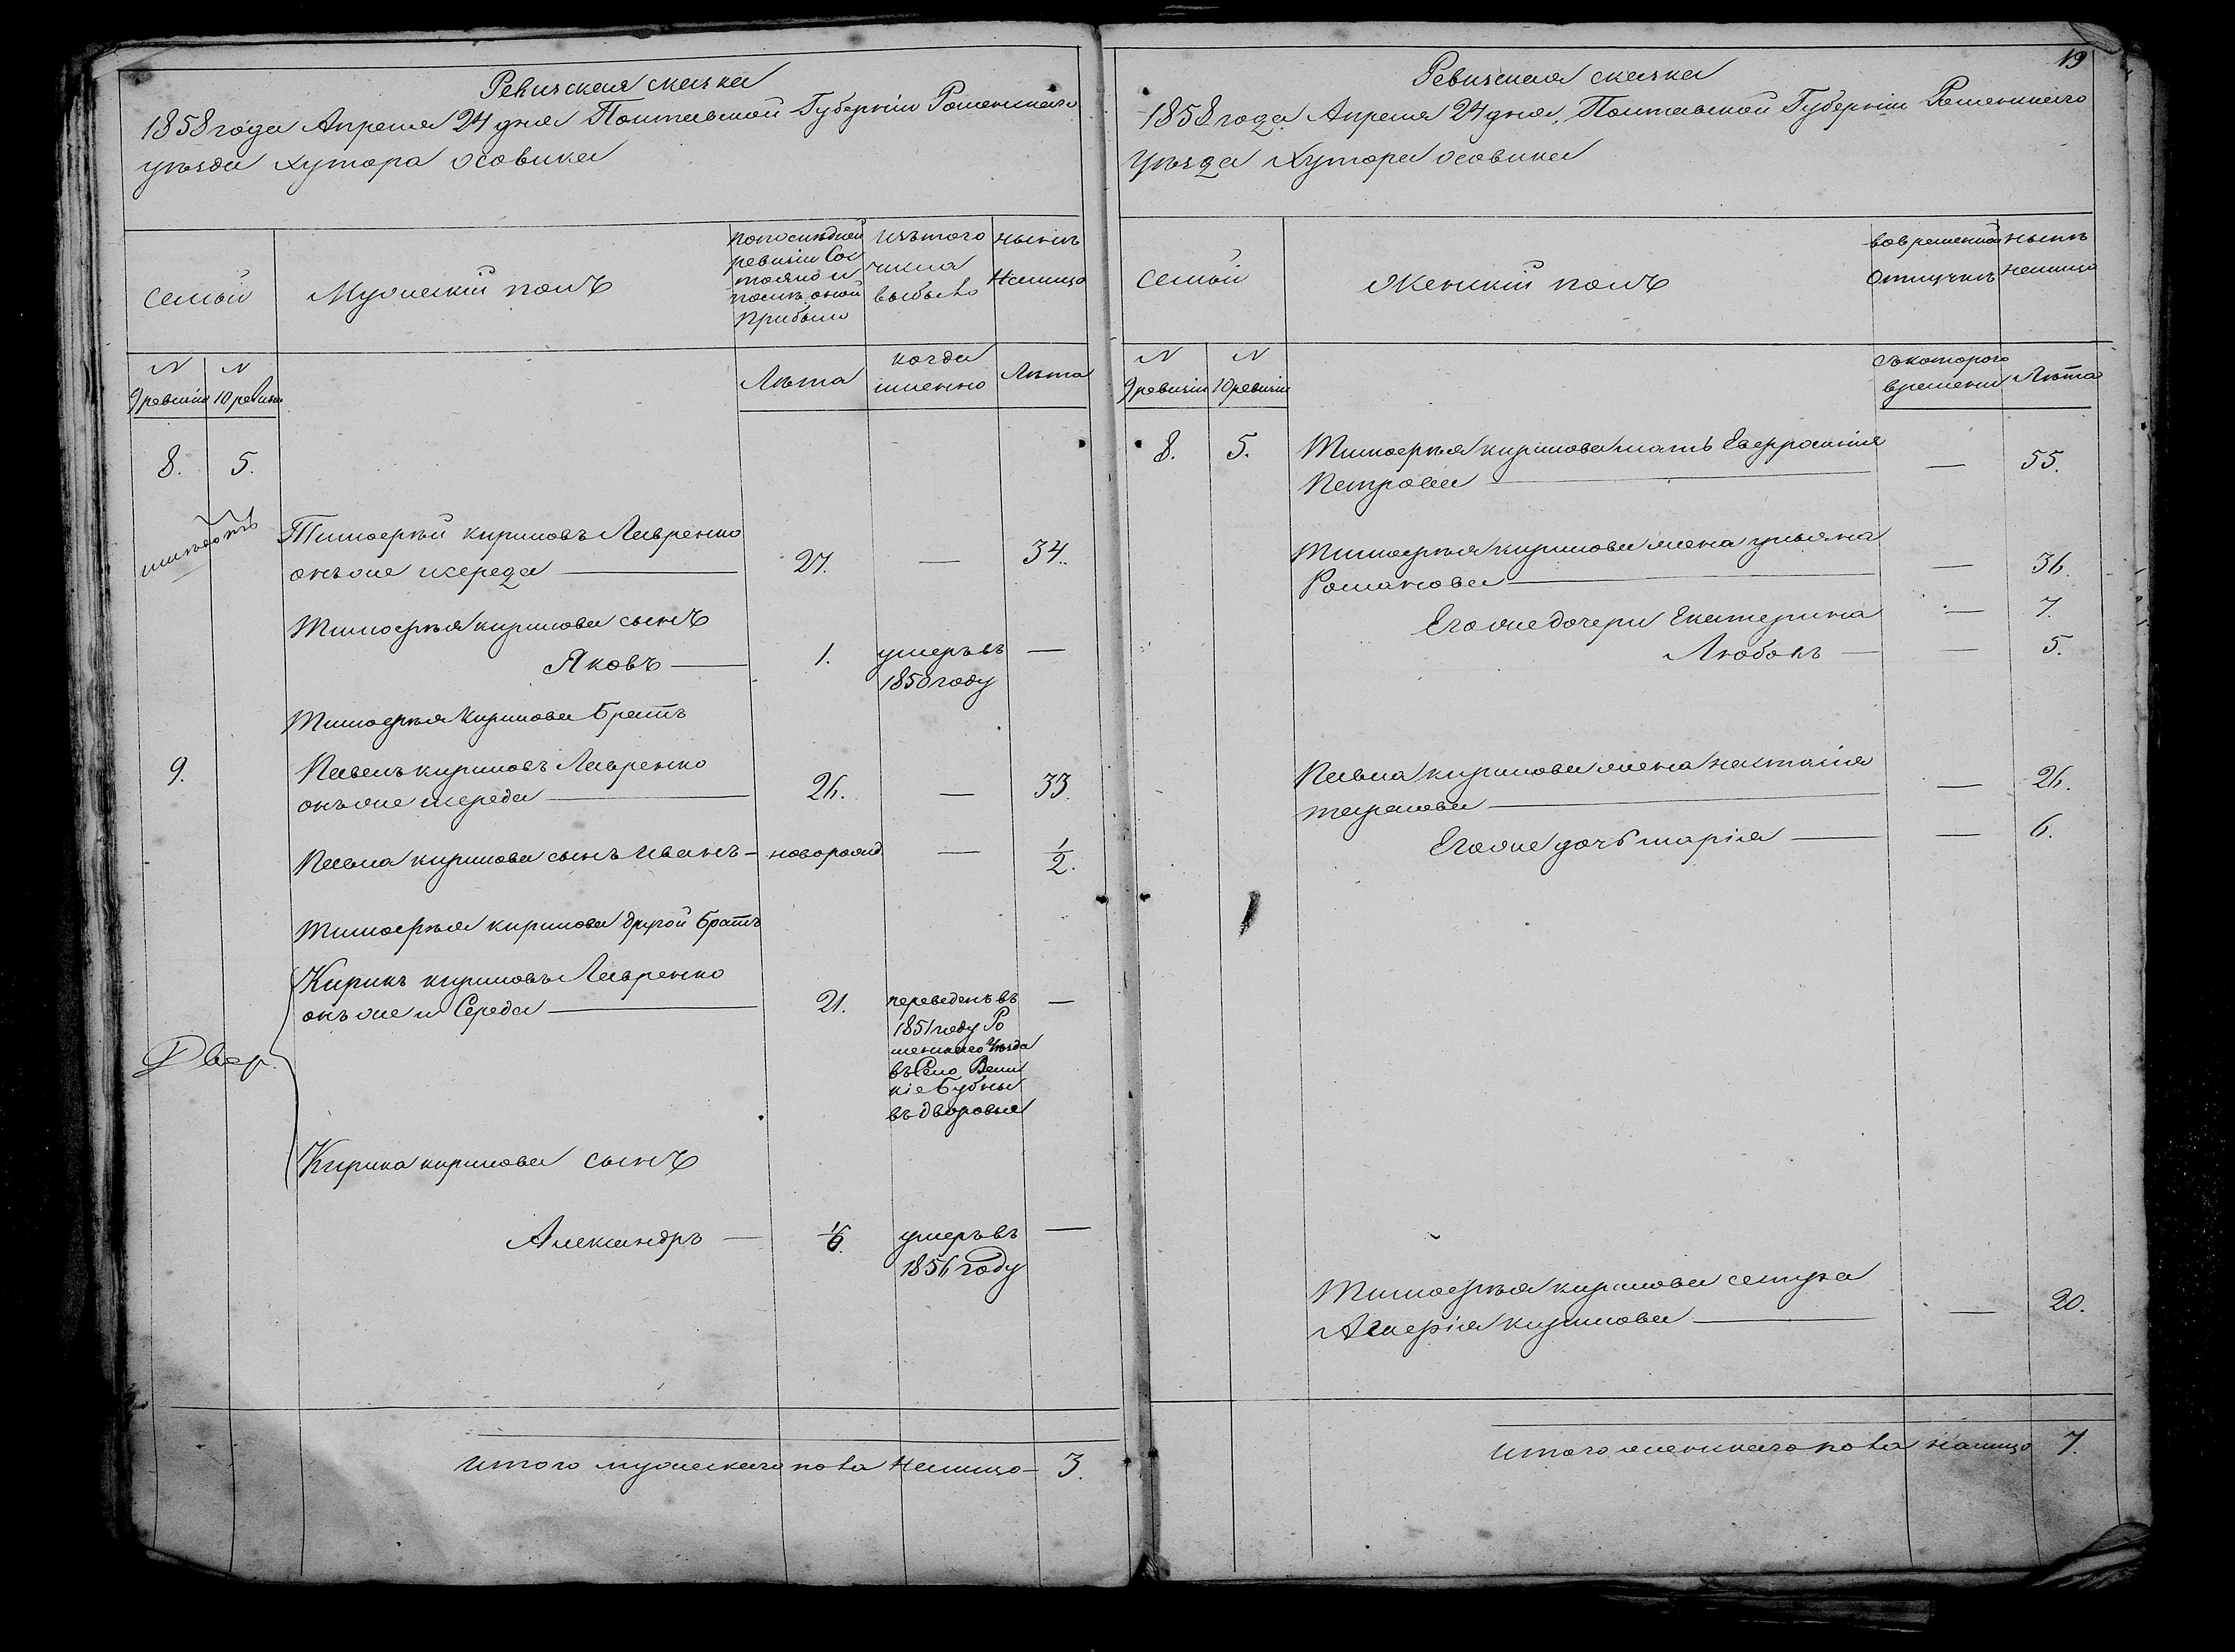 Ревизская сказка
1858 года Апреля 24 дня Полтавской Губерніи Роменскаго
уѣзда хутора Осовика
семьи
Мужескій полъ
по последней ревизіи Состояло и послѣ оной прибыло
изъ того числа выбыло
нынѣ на лицо
N 9 ревизіи
N 10 ревизіи
Лѣта
когда именно
Лѣта
8. 5.
Тимофѣй кириловъ Лавренко
онъ же и середа — 27. — 34.
Тимофѣя кирилова сынъ
Яковъ — 1. умеръ въ —
1850 году
Тимофѣя Кирилова Братъ
9. Павелъ кириловъ Лавренко
онъ же и середа — 26. — 33.
Павла кирилова сынъ иванъ — новорожд. — 1/2.
Тимофѣя кирилова другой братъ
Кирикъ кириловъ Лавренко
онъ же и Середа — 21. переведенъ въ —
1851 году Ро
менскаго уѣзда
въ Село Вели
кіе Бубны
въ дворовые
Двор.
Кирика кирилова сынъ
Александръ — 1/6. умеръ въ —
1856 году
итого мужескаго пола налицо — 3.
19
Ревизская сказка
1858 года Апреля 24 дня, Полтавской Губерніи Роменскаго
уѣзда Хутора осовика
семьи
Женскій полъ
во временной отлучкѣ
нынѣ налицо
N 9 ревизіи
N 10 ревизіи
съ котораго времени
Лѣта
8. 5. Тимофѣя кирилова мать Евфросинія
Петрова — — 55.
Тимофѣя кирилова жена ульяна
Романова — — 36.
Его же дочери Екатерина — 7.
Любовь — — 5.
Павла кирилова жена настасія
тарасова — — 26.
Его же дочь марія — — 6.
Тимофѣя кирилова сестра
кирилова — — 20.
итого женскаго пола налицо 7.